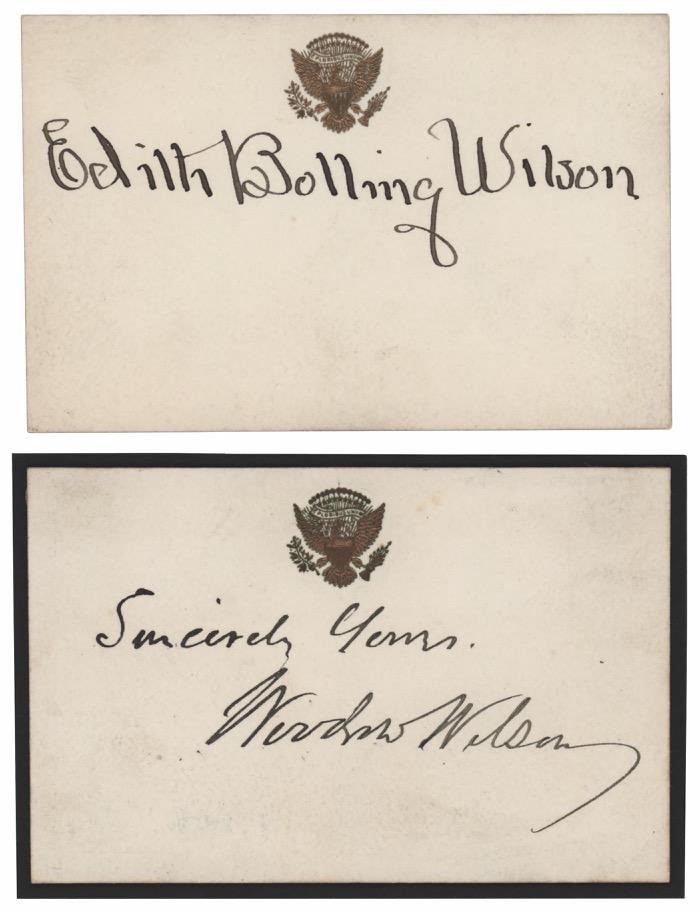 Edith Bolling Wilson
Sincerely Yours.
Woodrow Wilson